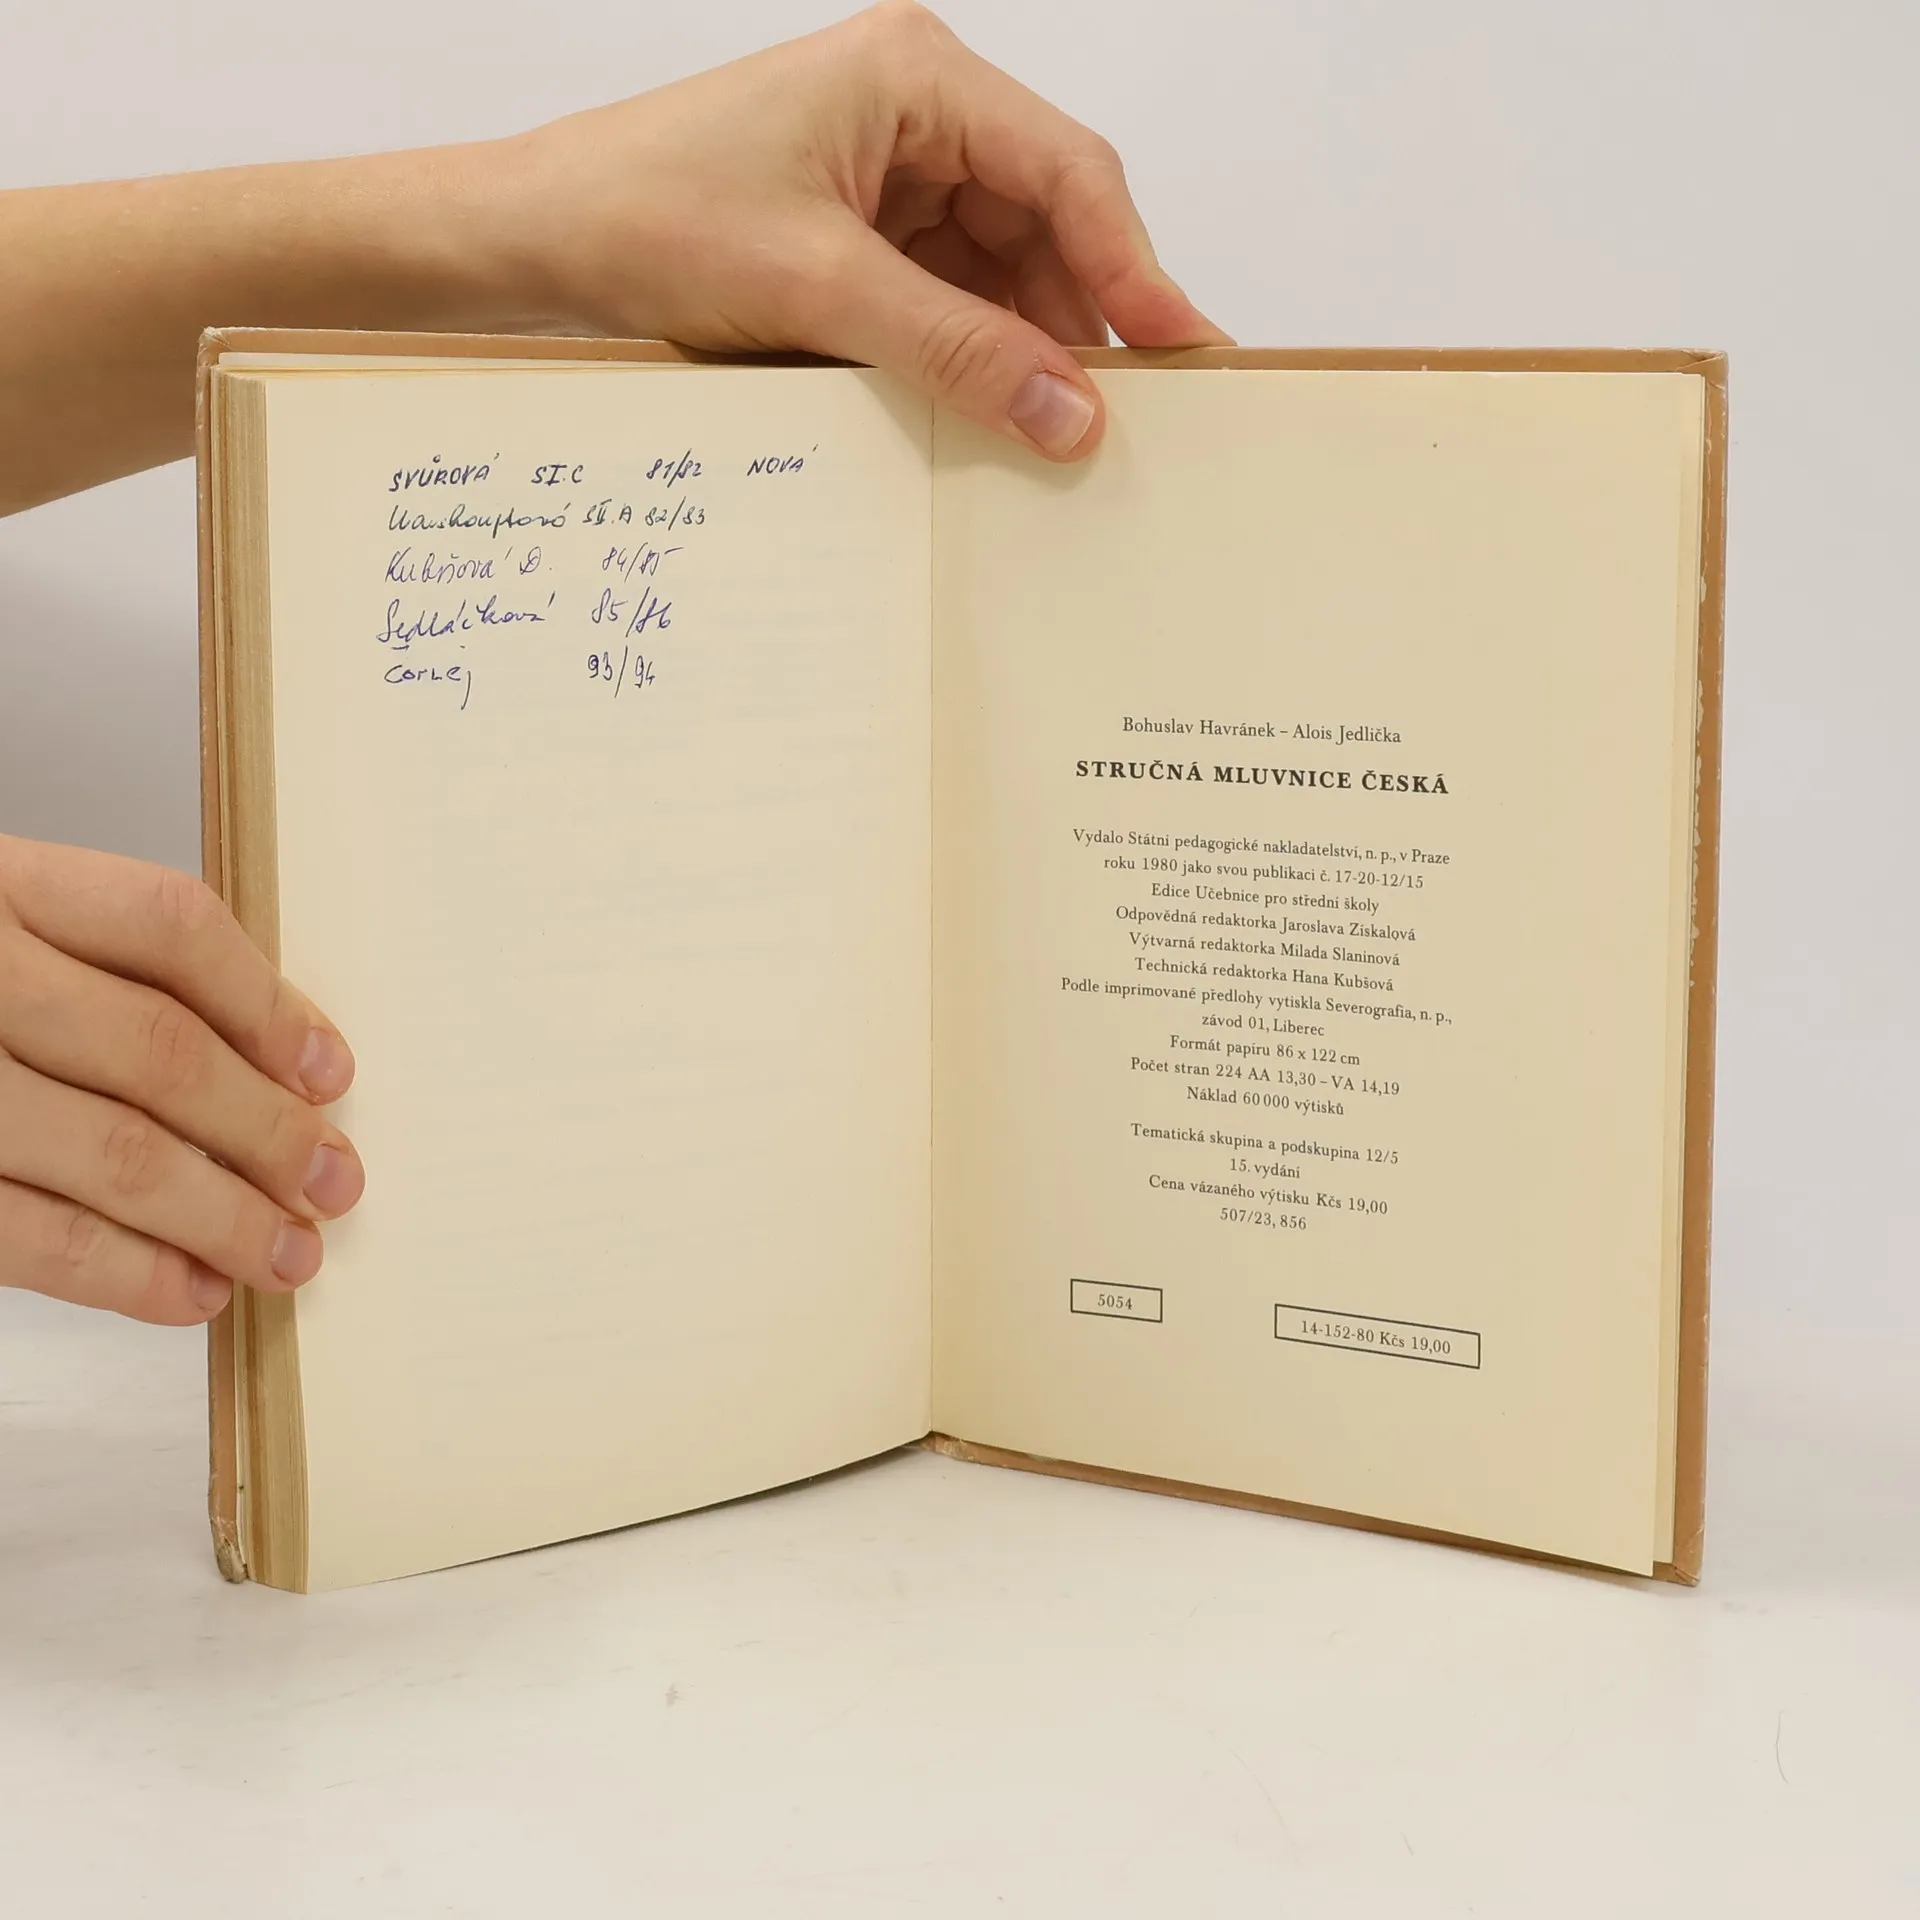 SVŮROVÁ SI.C 81/82 NOVÁ
SII.A 82/83
Kubšová D. 84/85
Sedláčková 85/86
93/94
Bohuslav Havránek – Alois Jedlička
STRUČNÁ MLUVNICE ČESKÁ
Vydalo Státní pedagogické nakladatelství, n. p., v Praze
roku 1980 jako svou publikaci č. 17-20-12/15
Edice Učebnice pro střední školy
Odpovědná redaktorka Jaroslava Získalová
Výtvarná redaktorka Milada Slaninová
Technická redaktorka Hana Kubšová
Podle imprimované předlohy vytiskla Severografia, n. p.,
závod 01, Liberec
Formát papíru 86 x 122 cm
Počet stran 224 AA 13,30 – VA 14,19
Náklad 60 000 výtisků
Tematická skupina a podskupina 12/5
15. vydání
Cena vázaného výtisku Kčs 19,00
507/23, 856
5054
14-152-80 Kčs 19,00